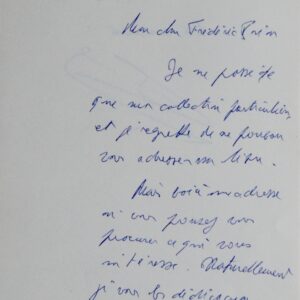 Mon cher Frédéric
Je ne possède
que ma collection particulière,
et je regrette de ne pouvoir
vous adresser un livre.
Mais voici mon adresse
si vous pouvez vous
procurer ce qui vous
intéresse. Naturellement
je vous les dédicacerai